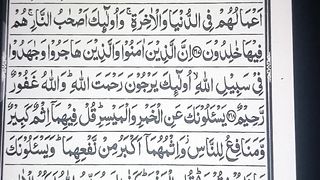 اَعْمَالُهُمْ فِی الدُّنْیَا وَالْاٰخِرَةِ ۚ وَاُولٰٓئِكَ اَصْحٰبُ النَّارِ ۚ هُمْ
فِیْهَا خٰلِدُوْنَ ﴿۲۱۷﴾ اِنَّ الَّذِیْنَ اٰمَنُوْا وَالَّذِیْنَ هَاجَرُوْا وَجٰهَدُوْا
فِیْ سَبِیْلِ اللّٰهِ ۙ اُولٰٓئِكَ یَرْجُوْنَ رَحْمَتَ اللّٰهِ ؕ وَاللّٰهُ غَفُوْرٌ
رَّحِیْمٌ ﴿۲۱۸﴾ یَسْـَٔلُوْنَكَ عَنِ الْخَمْرِ وَالْمَیْسِرِ ؕ قُلْ فِیْهِمَاۤ اِثْمٌ كَبِیْرٌ
وَّمَنَافِعُ لِلنَّاسِ ؗ وَاِثْمُهُمَاۤ اَكْبَرُ مِنْ نَّفْعِهِمَا ؕ وَیَسْـَٔلُوْنَكَ